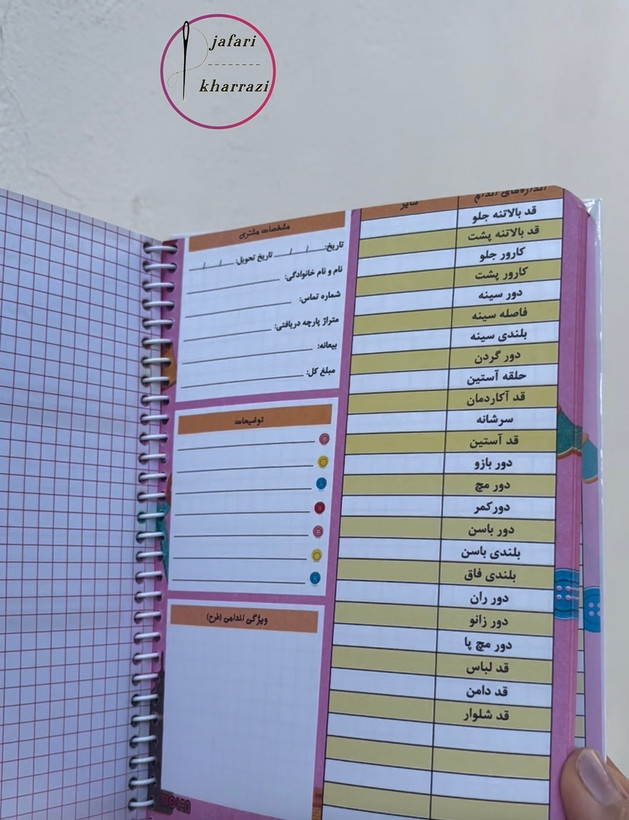 jafari
kharrazi
اندازه‌های اندام
سایز
قد بالاتنه جلو
قد بالاتنه پشت
کارور جلو
کارور پشت
دور سینه
فاصله سینه
بلندی سینه
دور گردن
حلقه آستین
قد آکاردمان
سرشانه
قد آستین
دور بازو
دور مچ
دورکمر
دور باسن
بلندی باسن
بلندی فاق
دور ران
دور زانو
دور مچ پا
قد لباس
قد دامن
قد شلوار
مشخصات مشتری
تاریخ: / / تاریخ تحویل: / /
نام و نام خانوادگی:
شماره تماس:
متراژ پارچه دریافتی:
بیعانه:
مبلغ کل:
توضیحات
ویژگی اندامی (طرح)